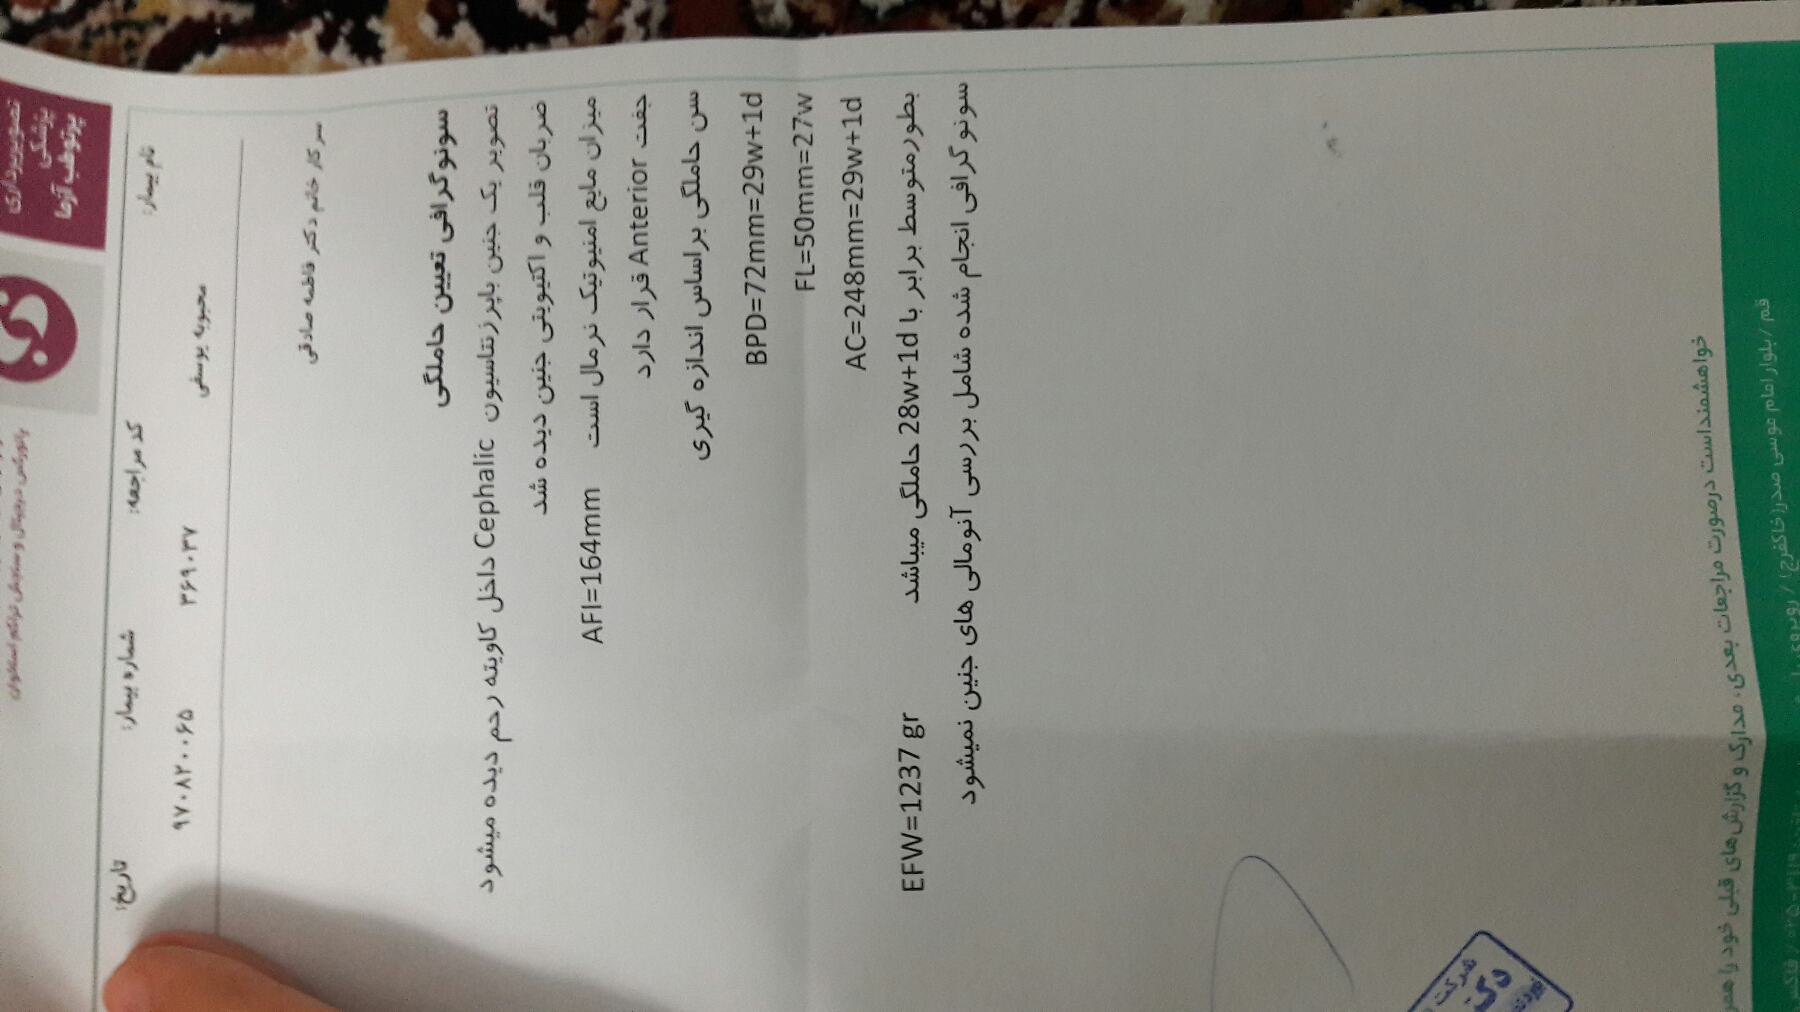 تصویربرداری
پزشکی
پرتوطب آزما
نام بیمار:
کد مراجعه:
شماره بیمار:
تاریخ:
محبوبه یوسفی
۳۶۹۰۳۷
۹۷۰۸۲۰۰۶۵
سرکار خانم دکتر فاطمه صادقی
سونوگرافی تعیین حاملگی
تصویر یک جنین باپرزنتاسیون Cephalic داخل کاویته رحم دیده میشود
ضربان قلب و اکتیویتی جنین دیده شد
میزان مایع امنیوتیک نرمال است AFI=164mm
جفت Anterior قرار دارد
سن حاملگی براساس اندازه گیری
BPD=72mm=29w+1d
FL=50mm=27w
AC=248mm=29w+1d
بطورمتوسط برابر با 28w+1d حاملگی میباشد EFW=1237 gr
سونوگرافی انجام شده شامل بررسی آنومالی های جنین نمیشود
شرکت
دکتر
خواهشمنداست درصورت مراجعات بعدی، مدارک و گزارش‌های قبلی خود را
قم / بلوار امام موسی صدر(خاکفرج) / روبروی